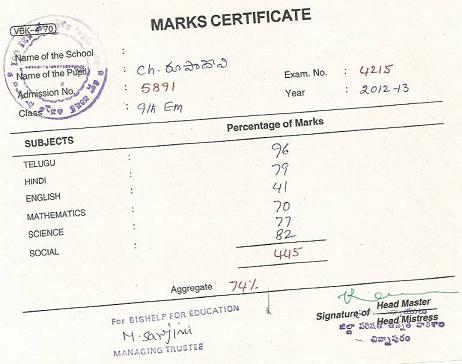 MARKS CERTIFICATE
VBK-470
Name of the School :
Name of the Pupil : Ch. రూపాదేవి Exam. No. : 4215
Admission No. : 5891 Year : 2012-13
Class : 9th Em
SUBJECTS Percentage of Marks
TELUGU : 96
HINDI : 79
ENGLISH : 41
MATHEMATICS : 70
SCIENCE : 77
SOCIAL : 82
445
Aggregate 74%
For BIGHELP FOR EDUCATION
M. Sarjini
MANAGING TRUSTEE
Signature of Head Master
Head Mistress
జిల్లా పరిషత్ ఉన్నత పాఠశాల
చిన్నాపురం